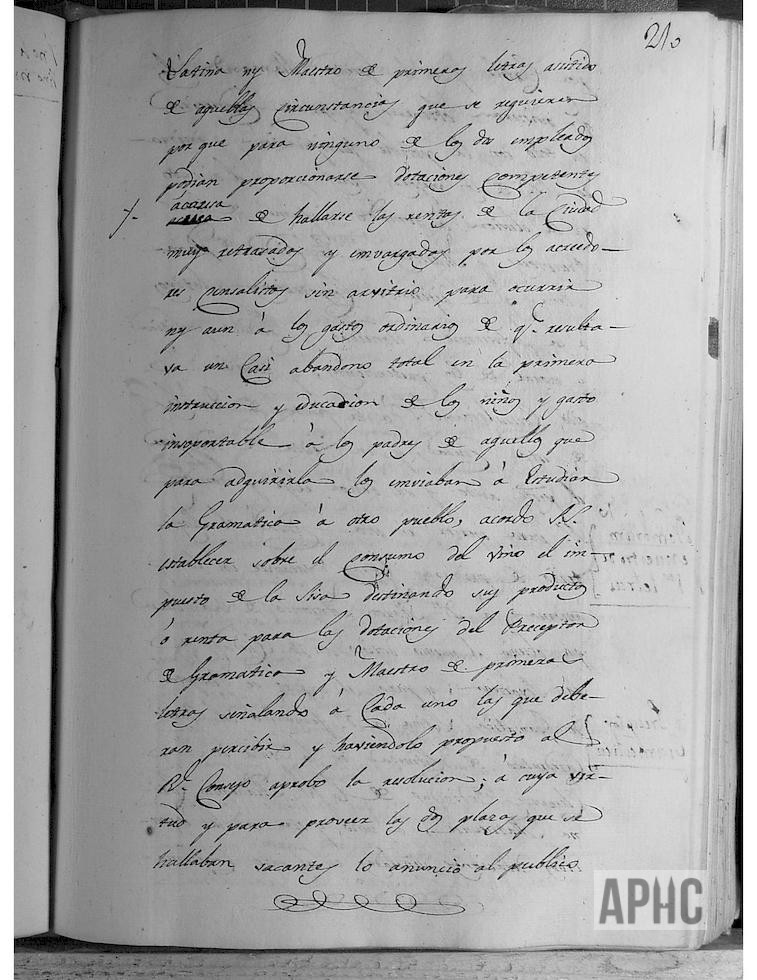 210
Latina ny Maestro de primeras letras asistido
de aquellas circunstancias que se requieren
por que para ninguno de los dos empleados
podian proporcionarse dotaciones competentes
acausa
de hallarse las rentas de la Ciudad
muy retrasadas y envargadas por los acreedo-
res censalistas sin arvitrio para ocurrir
ny aun à los gastos ordinarios de q.e resulta-
va un Casi abandono total en la primera
instruccion y educacion de los niños y gasto
insoportable à los padres de aquellos que
para adquirirla los enviaban à Estudiar
la Gramatica à otro pueblo, acordo S.S.
establecer sobre el consumo del vino el im-
puesto de la sisa destinando sus productos
ò renta para las dotaciones del Preceptor
de Gramatica y Maestro de primeras
letras señalando à Cada uno las que debe-
ran percibir y haviendolo propuesto al
R.l Consejo aprobo la resolucion; à cuya vir-
tud y para proveer las dos plazas que se
hallaban vacantes lo anunciò al publico
APHC